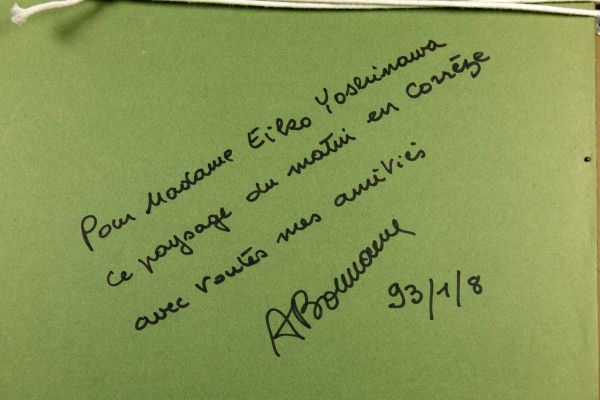 Pour Madame Eiko Yoshinawa
ce paysage du matin en Corrèze
avec toutes mes amitiés
93/1/8